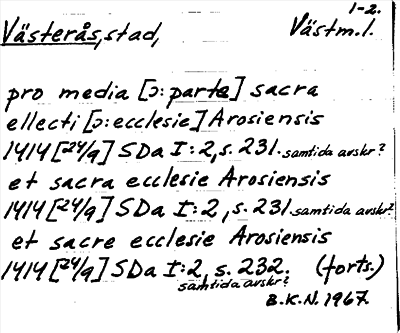 1-2.
Västerås, stad, Västm.l.
pro media [ɔ: parte] sacra
ellecti [ɔ: ecclesie] Arosiensis
1414 [24/9] SDa I:2, s. 231. samtida avskr?
et sacra ecclesie Arosiensis
1414 [24/9] SDa I:2, s. 231. samtida avskr?
et sacre ecclesie Arosiensis
1414 [24/9] SDa I:2, s. 232. (forts.)
samtida avskr?
B.K.N. 1967.